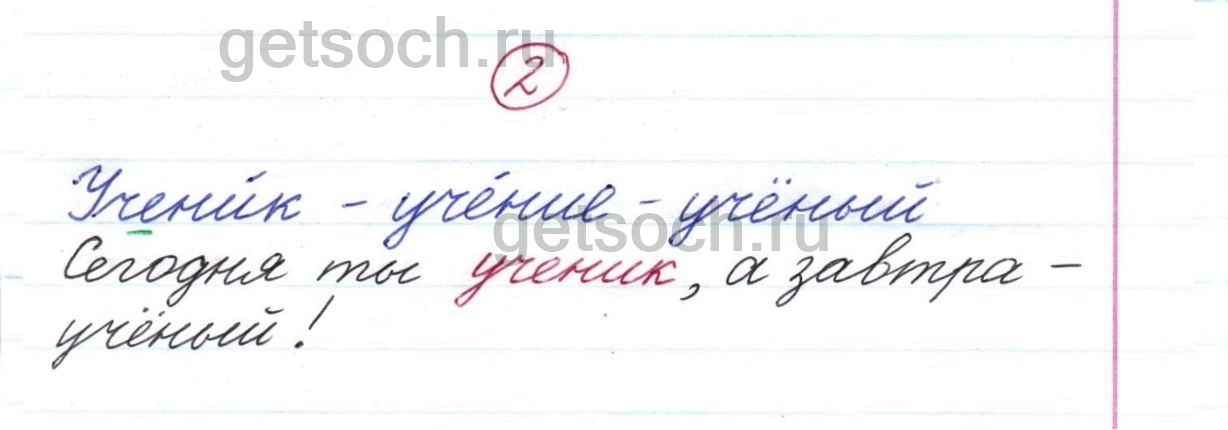 getsoch.ru
2
Учени́к – уче́ние – учёный
getsoch.ru
Сегодня ты ученик, а завтра –
учёный!